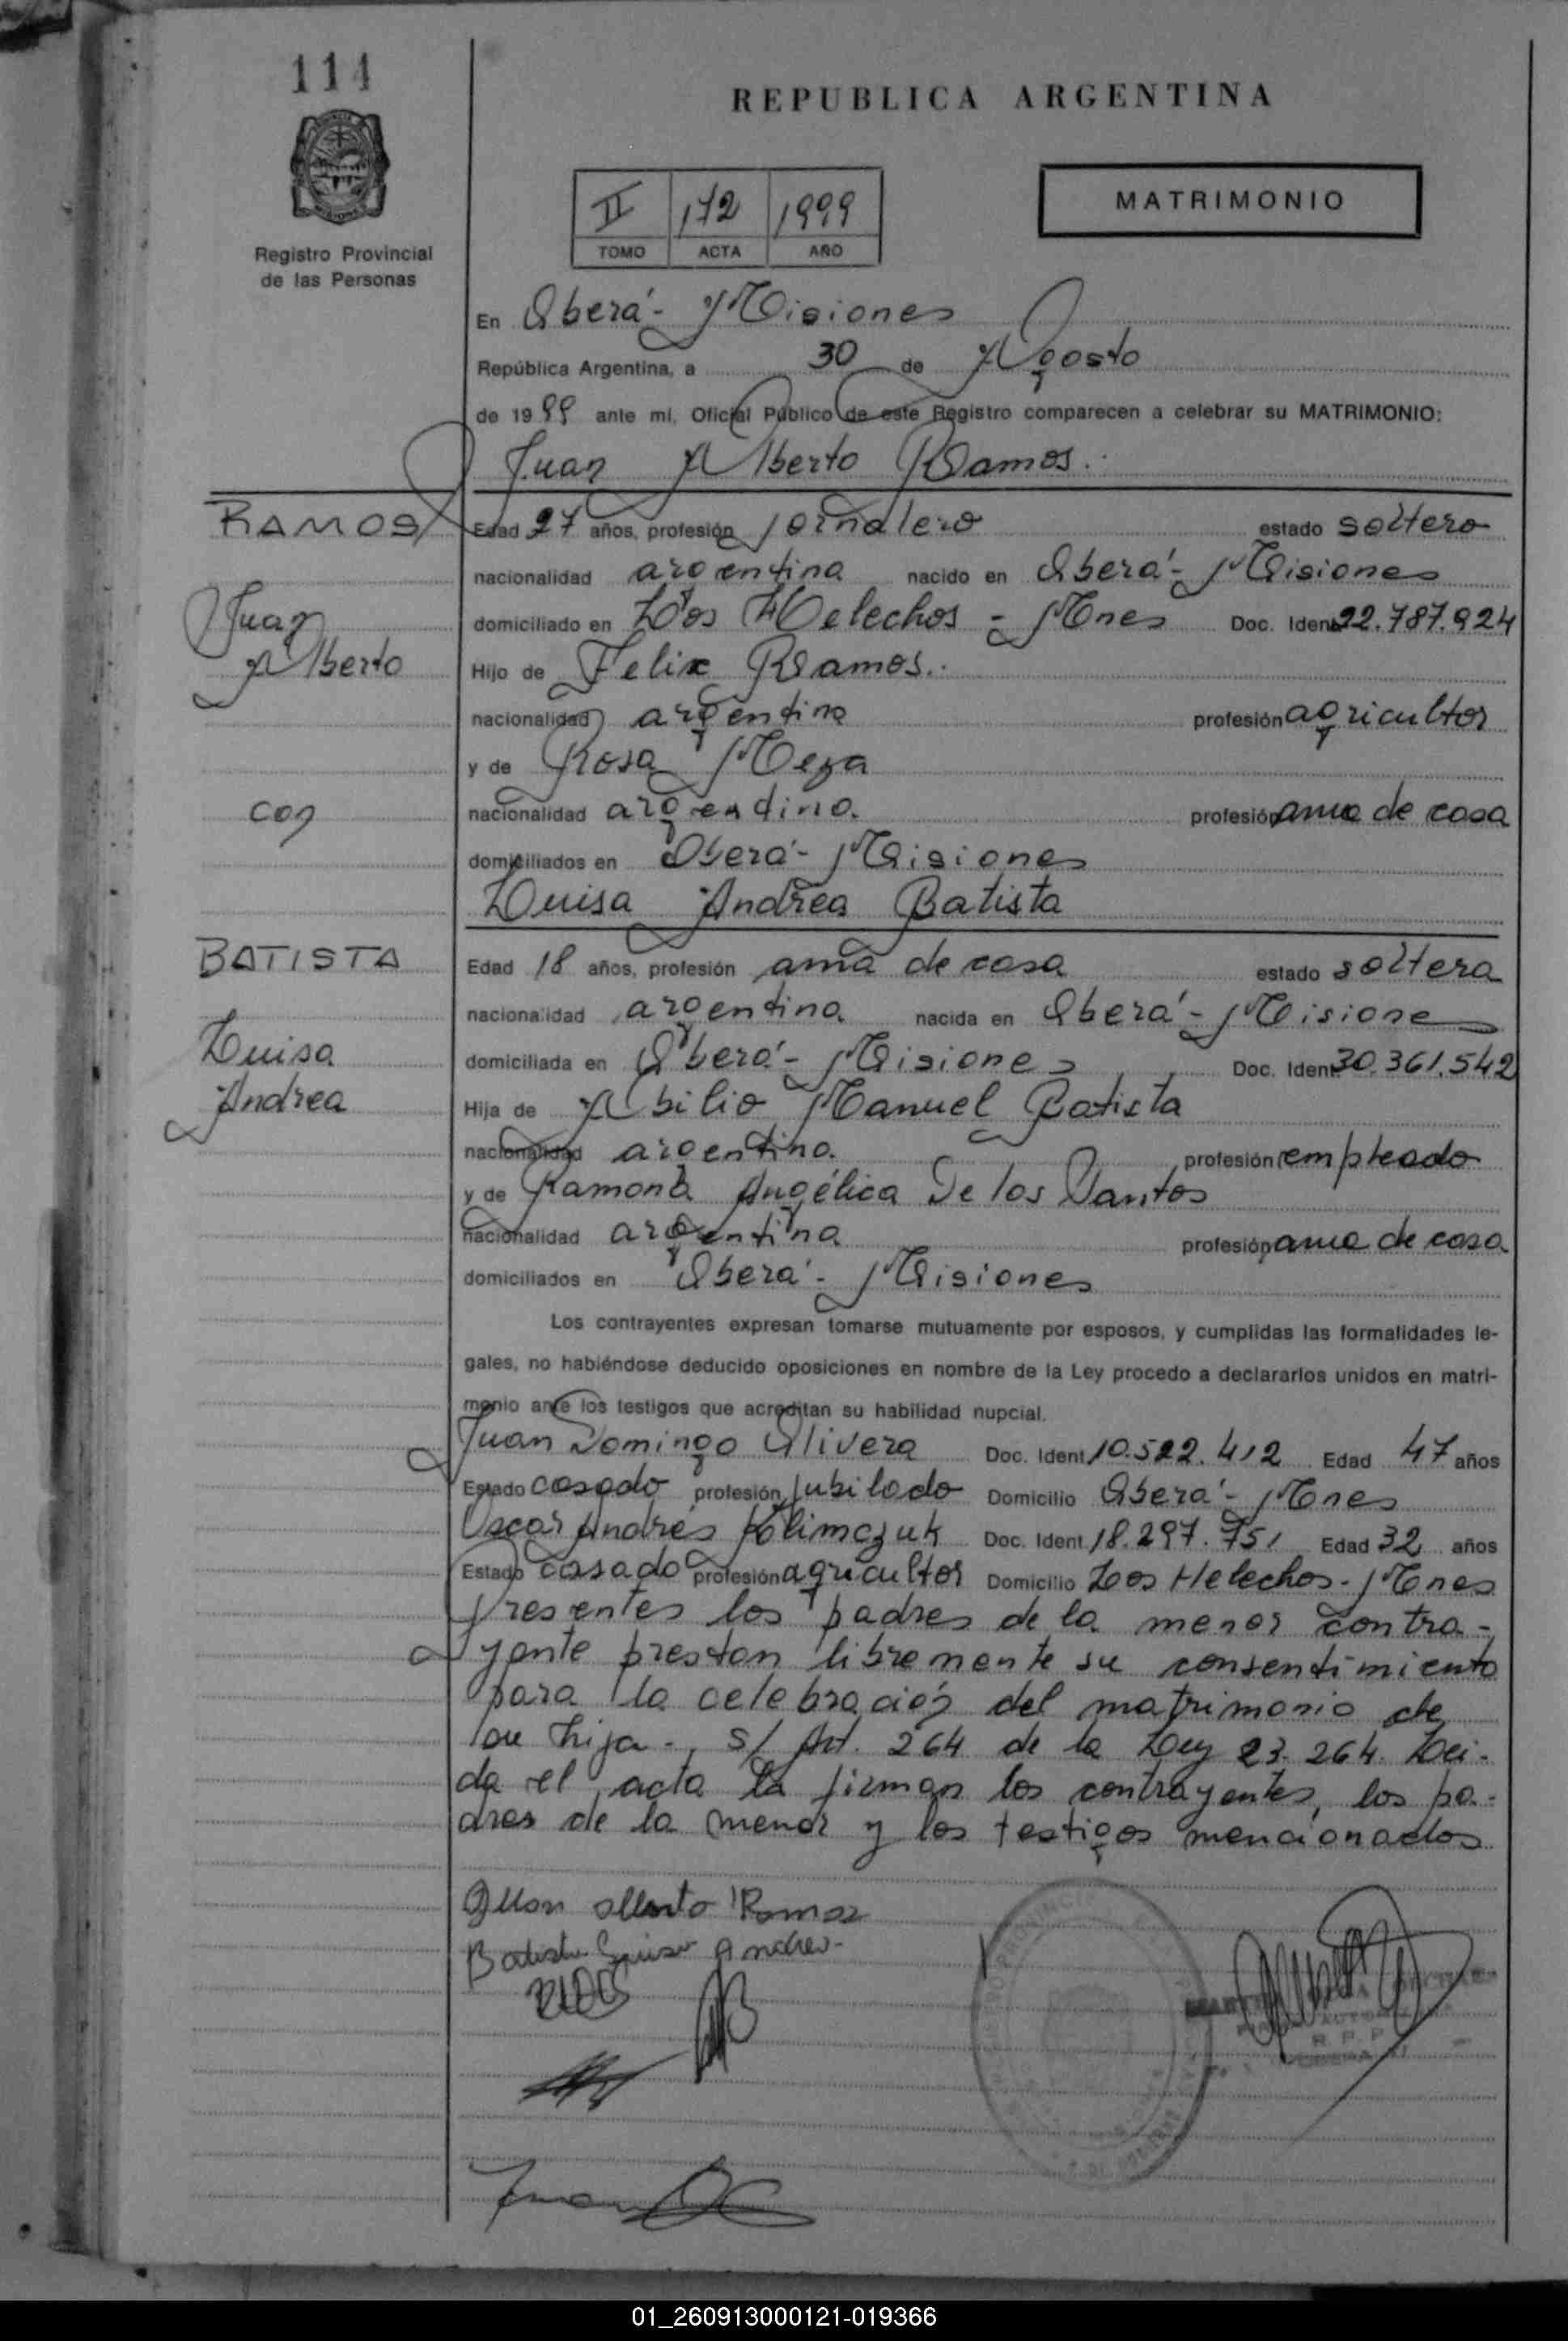 111
REPUBLICA ARGENTINA
II 172 1999
TOMO ACTA AÑO
MATRIMONIO
Registro Provincial
de las Personas
En Oberá - Misiones
República Argentina, a 30 de Agosto
de 1999 ante mí, Oficial Público de este Registro comparecen a celebrar su MATRIMONIO:
Juan Alberto Ramos.
RAMOS
Juan
Alberto
con
BATISTA
Luisa
Andrea
Edad 27 años, profesión jornalero estado soltero
nacionalidad argentina nacido en Oberá - Misiones
domiciliado en Los Helechos - Mnes Doc. Ident. 22.787.924
Hijo de Felix Ramos.
nacionalidad argentina profesión agricultor
y de Rosa Meza
nacionalidad argentina. profesión ama de casa
domiciliados en Oberá - Misiones
Luisa Andrea Batista
Edad 18 años, profesión ama de casa estado soltera
nacionalidad argentina nacida en Oberá - Misiones
domiciliada en Oberá - Misiones Doc. Ident. 30.361.542
Hija de Abilio Manuel Batista
nacionalidad argentina. profesión empleado
y de Ramona Angélica De los Santos
nacionalidad argentina profesión ama de casa
domiciliados en Oberá - Misiones
Los contrayentes expresan tomarse mutuamente por esposos, y cumplidas las formalidades le-
gales, no habiéndose deducido oposiciones en nombre de la Ley procedo a declararlos unidos en matri-
monio ante los testigos que acreditan su habilidad nupcial.
Juan Domingo Olivera Doc. Ident. 10.522.412 Edad 47 años
Estado casado profesión jubilado Domicilio Oberá - Mnes
Oscar Andrés Klimczuk Doc. Ident. 18.297.751 Edad 32 años
Estado casado profesión agricultor Domicilio Los Helechos - Mnes
Presentes los padres de la menor contra-
yente prestan libremente su consentimiento
para la celebración del matrimonio de
su hija -, s/ Art. 264 de la Ley 23.264. Lei-
da el acta la firman los contrayentes, los pa-
dres de la menor y los testigos mencionados
Juan Alberto Ramos
Batista Luisa Andrea -
R.P.P.
01_260913000121-019366